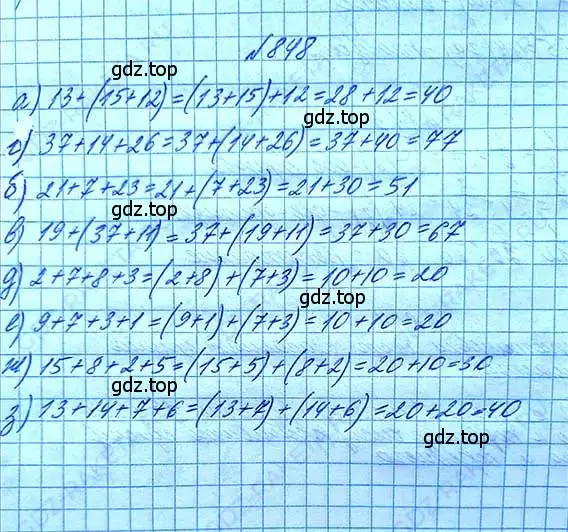 №848
gdz.top
а) 13+(15+12)=(13+15)+12=28+12=40
г) 37+14+26=37+(14+26)=37+40=77
gdz.top
б) 21+7+23=21+(7+23)=21+30=51
gdz.top
в) 19+(37+11)=37+(19+11)=37+30=67
д) 2+7+8+3=(2+8)+(7+3)=10+10=20
gdz.top
е) 9+7+3+1=(9+1)+(7+3)=10+10=20
ж) 15+8+2+5=(15+5)+(8+2)=20+10=30
gdz.top
з) 13+14+7+6=(13+7)+(14+6)=20+20=40
gdz.top